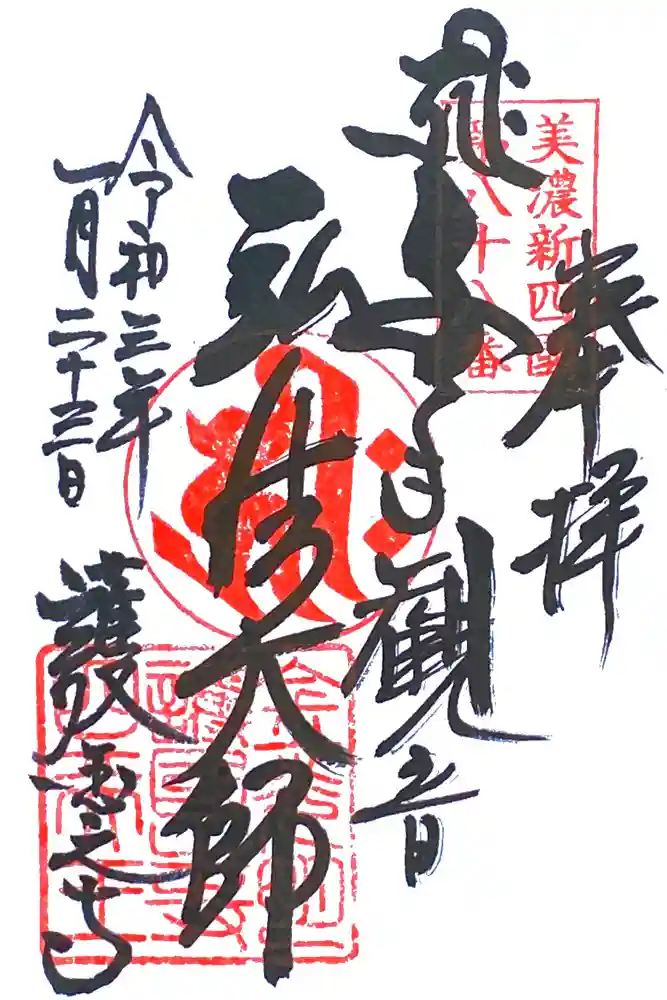 奉拝
美濃新四国
第八十八番
観音
弘法大師
令和三年
一月二十三日
護國之寺